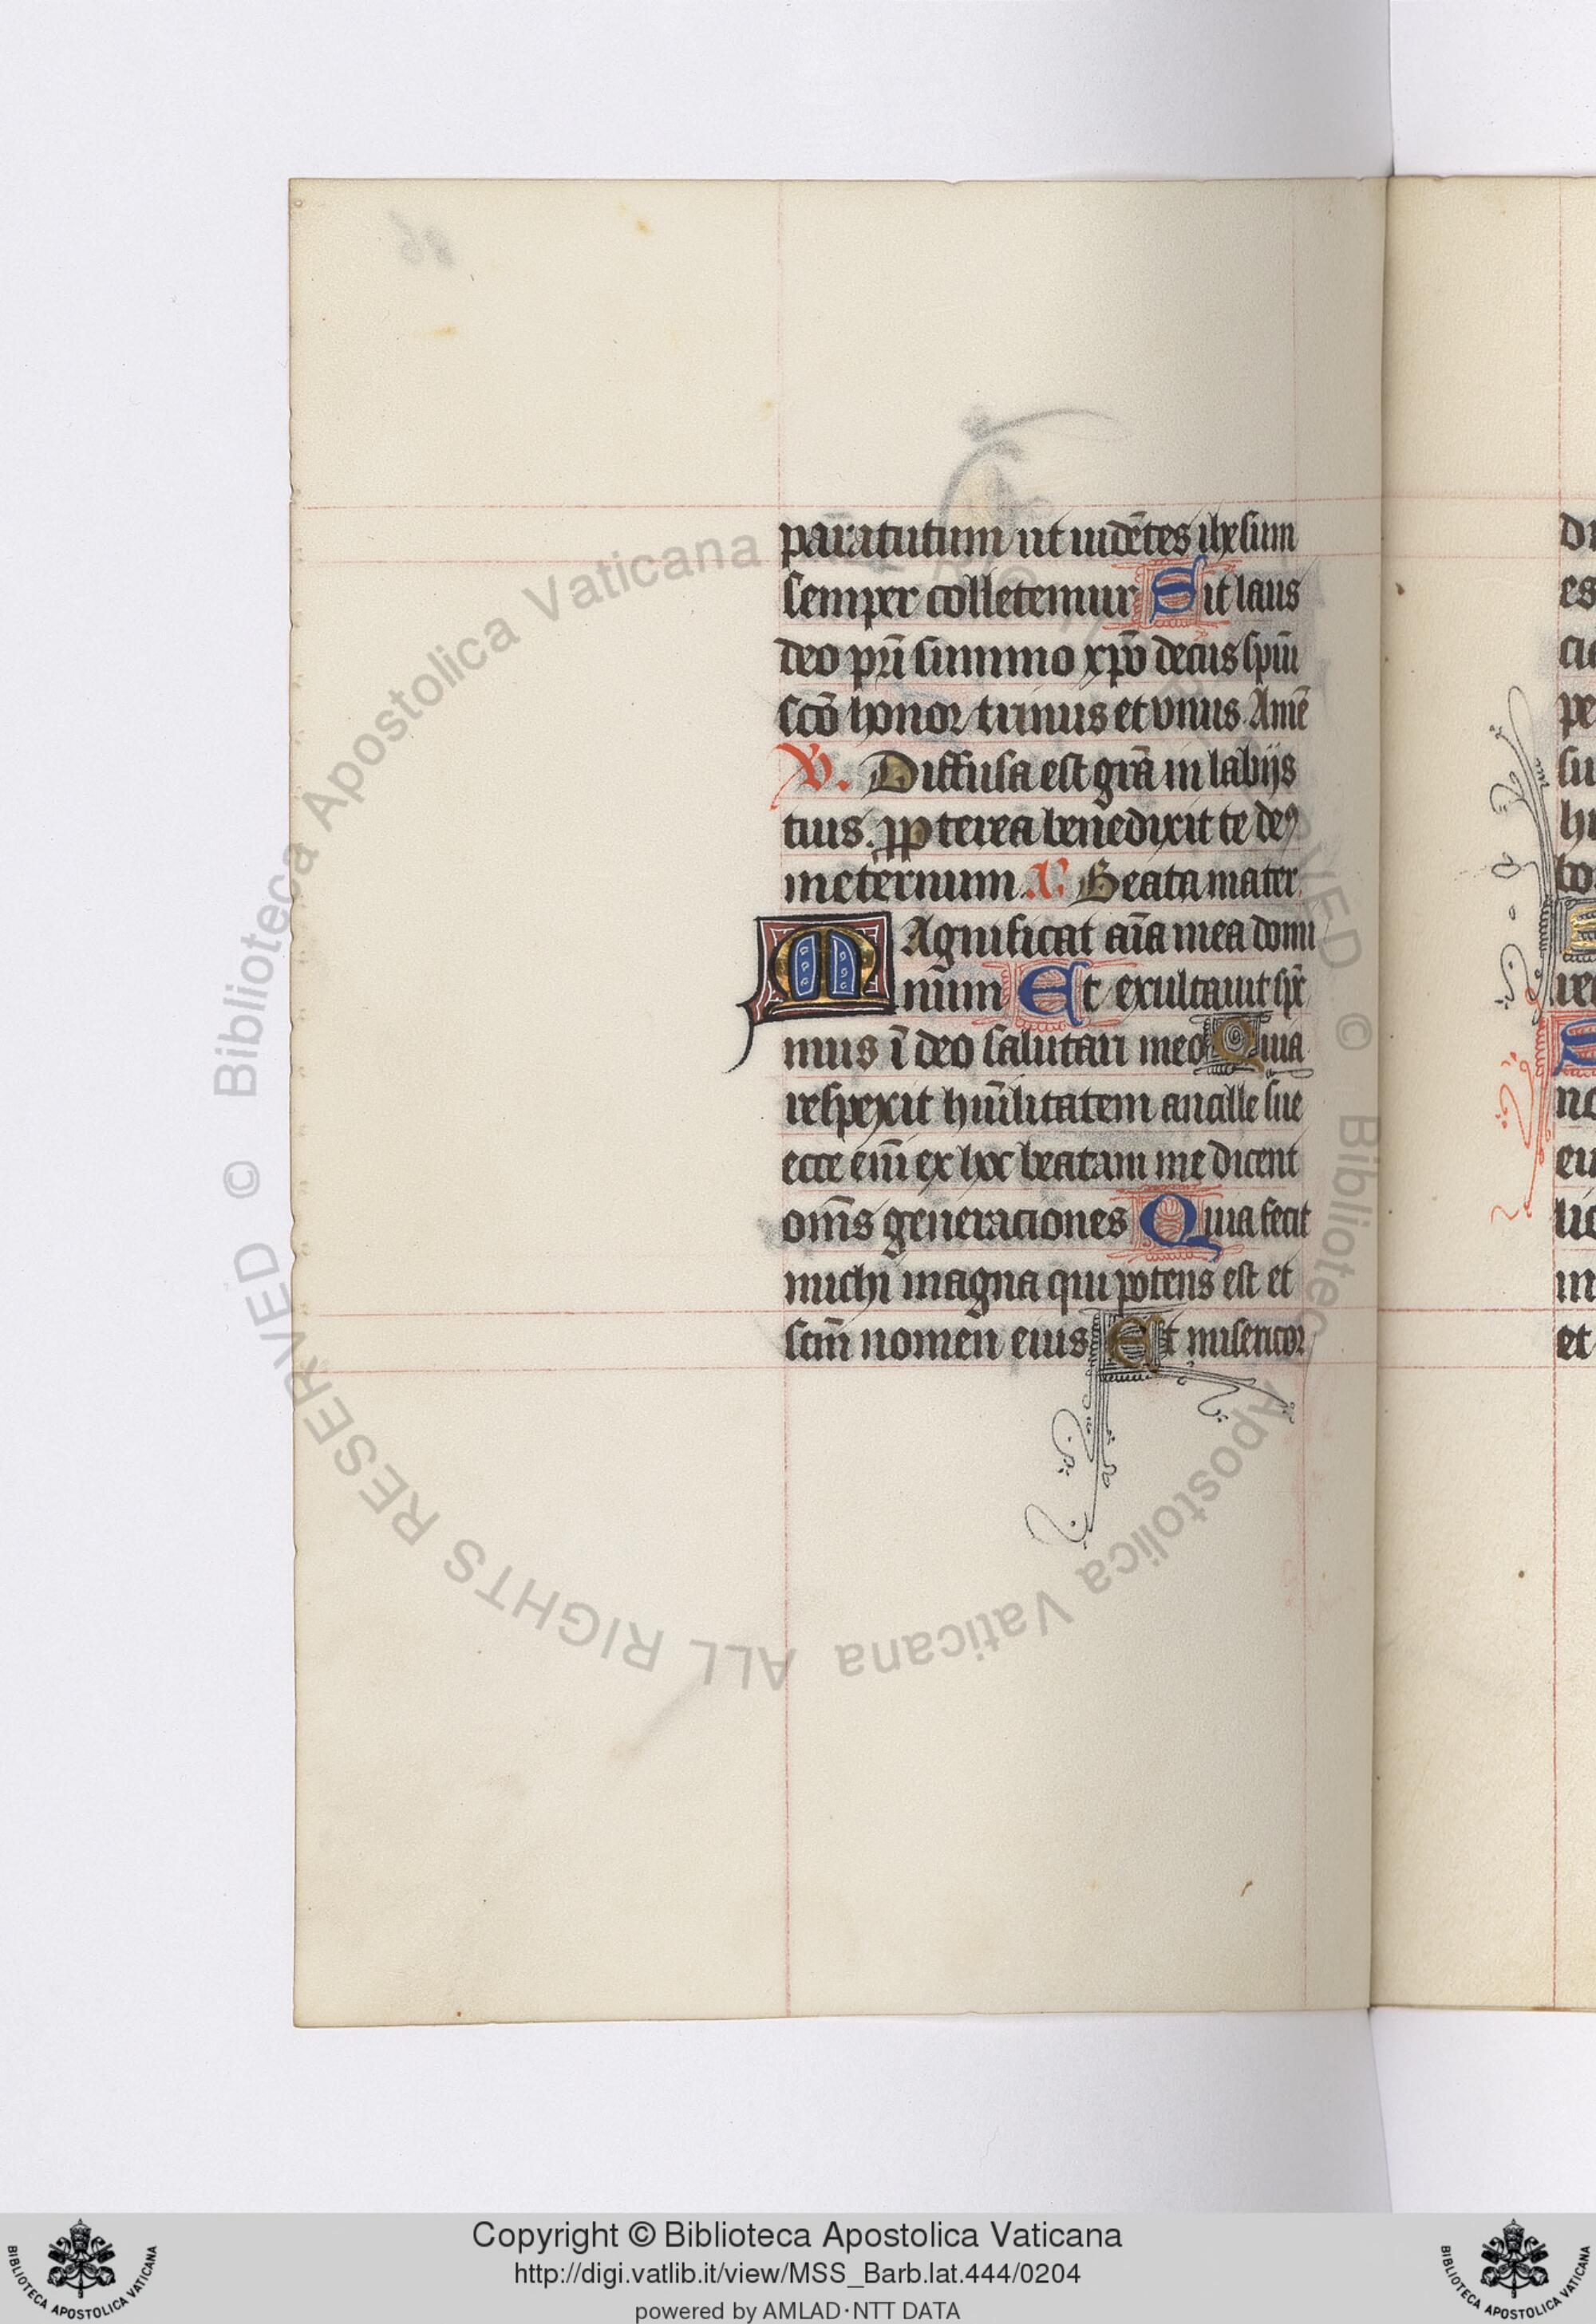 para tutum ut uidētes ihesum
semper colletemur Sit laus
deo pr̄i summo xp̄o decus spūi
scō honor trinus et vnus Amē
V. Diffusa est gr̄a in labijs
tuis. propterea benedixit te deꝰ
in eternum. A. Beata mater
MAgnificat aīa mea domi
num Et exultauit sp̄r
mus ī deo salutari meo Quia
respexit hūilitatem ancille sue
ecce eni̅ ex hoc beatam me dicent
om̄s generaciones Quia fecit
michi magna qui potens est et
scm̄ nomen eius Et misericor
es
pe
su
et
© Biblioteca Apostolica Vaticana ALL RIGHTS RESERVED © Biblioteca Apostolica Vaticana ALL RIGHTS RESERVED
Copyright © Biblioteca Apostolica Vaticana
http://digi.vatlib.it/view/MSS_Barb.lat.444/0204
powered by AMLAD·NTT DATA
BIBLIOTECA APOSTOLICA VATICANA
BIBLIOTECA APOSTOLICA VATICANA